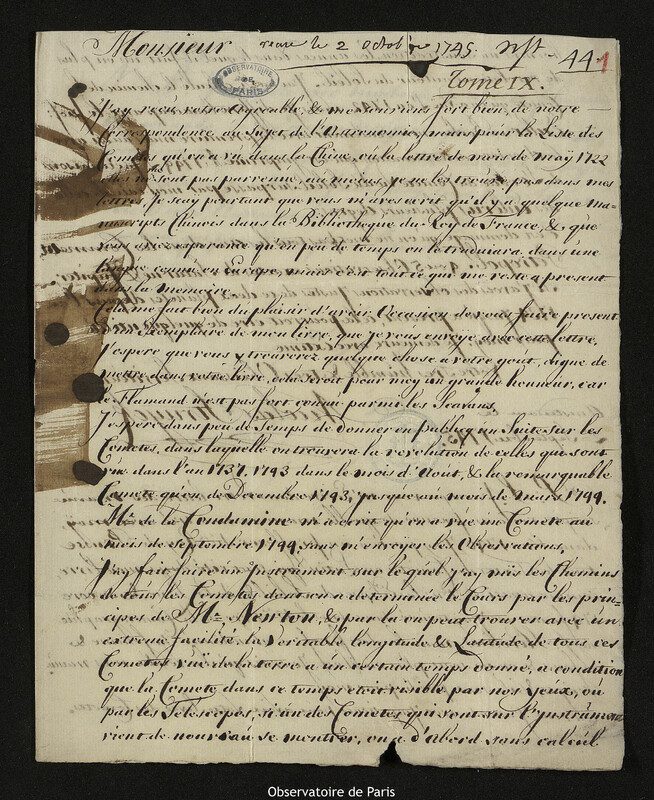 Monsieur reçu le 2 octobre 1745. 44 1
OBSERVATOIRE DE PARIS
Tome IX.
J'ay reçu votre Agreable, & me souviens fort bien, de notre
Correspondence, au Sujet de l'Astronomie, mais pour la Liste des
Cometes qu'on a vû dans la Chine, où la lettre de mois de maÿ 1722
n'est pas parvenue, au moins, je ne les trouve pas dans mes
lettres. Je scay pourtant que vous m'aves ecrit qu'il y a quelque Ma-
nuscripts Chinois dans la Bibliotheque du Roy de France, & que
vous avies esperance qu'en peu de temps on le traduira dans une
langue connue en Europe, mais c'est tout ce qui me reste a present
dans la Memoire.
Cela me fait bien du plaisir d'avoir Occasion de vous faire present
d'un Exemplaire de mon livre, que je vous envoye avec cette lettre,
J'espere que vous y trouverez quelque chose a votre goût, digne de
mettre dans votre livre, cela seroit pour moy un grande honneur, car
le Flamand n'est pas fort connu parmi les Scavans,
J'espere dans peu de Temps de donner en publicq un Suite sur les
Cometes, dans laquelle on trouvera la revolution de celles que sont
vûe dans l'an 1737. 1743 dans le mois d'Août, & la remarquable
Comete qu'on de Decembre 1743, jusque au mois de mars 1744.
Mr. de la Condamine m'a ecrit qu'on a vûe un Comete au
mois de Septembre 1744, sans m'envoyer les Observations,
J'ay fait faire un Instrument sur le quel j'ay mis les Chemins
de tous les Cometes dont on a determinée le Cours par les prin-
cipes de Mr. Newton, & par la on peut trouver avec un
extreme facilité, la Veritable Longitude & Latitude de tous ces
Cometes vûe de la terre a un certain temps donné, a condition
que la Comete dans ce temps etoit visible par nos yeux, ou
par les Telescopes, si un des Cometes qui sont sur l'Ynstrument
vient de nouveau se montrer, on a d'abord sans calcul
Observatoire de Paris